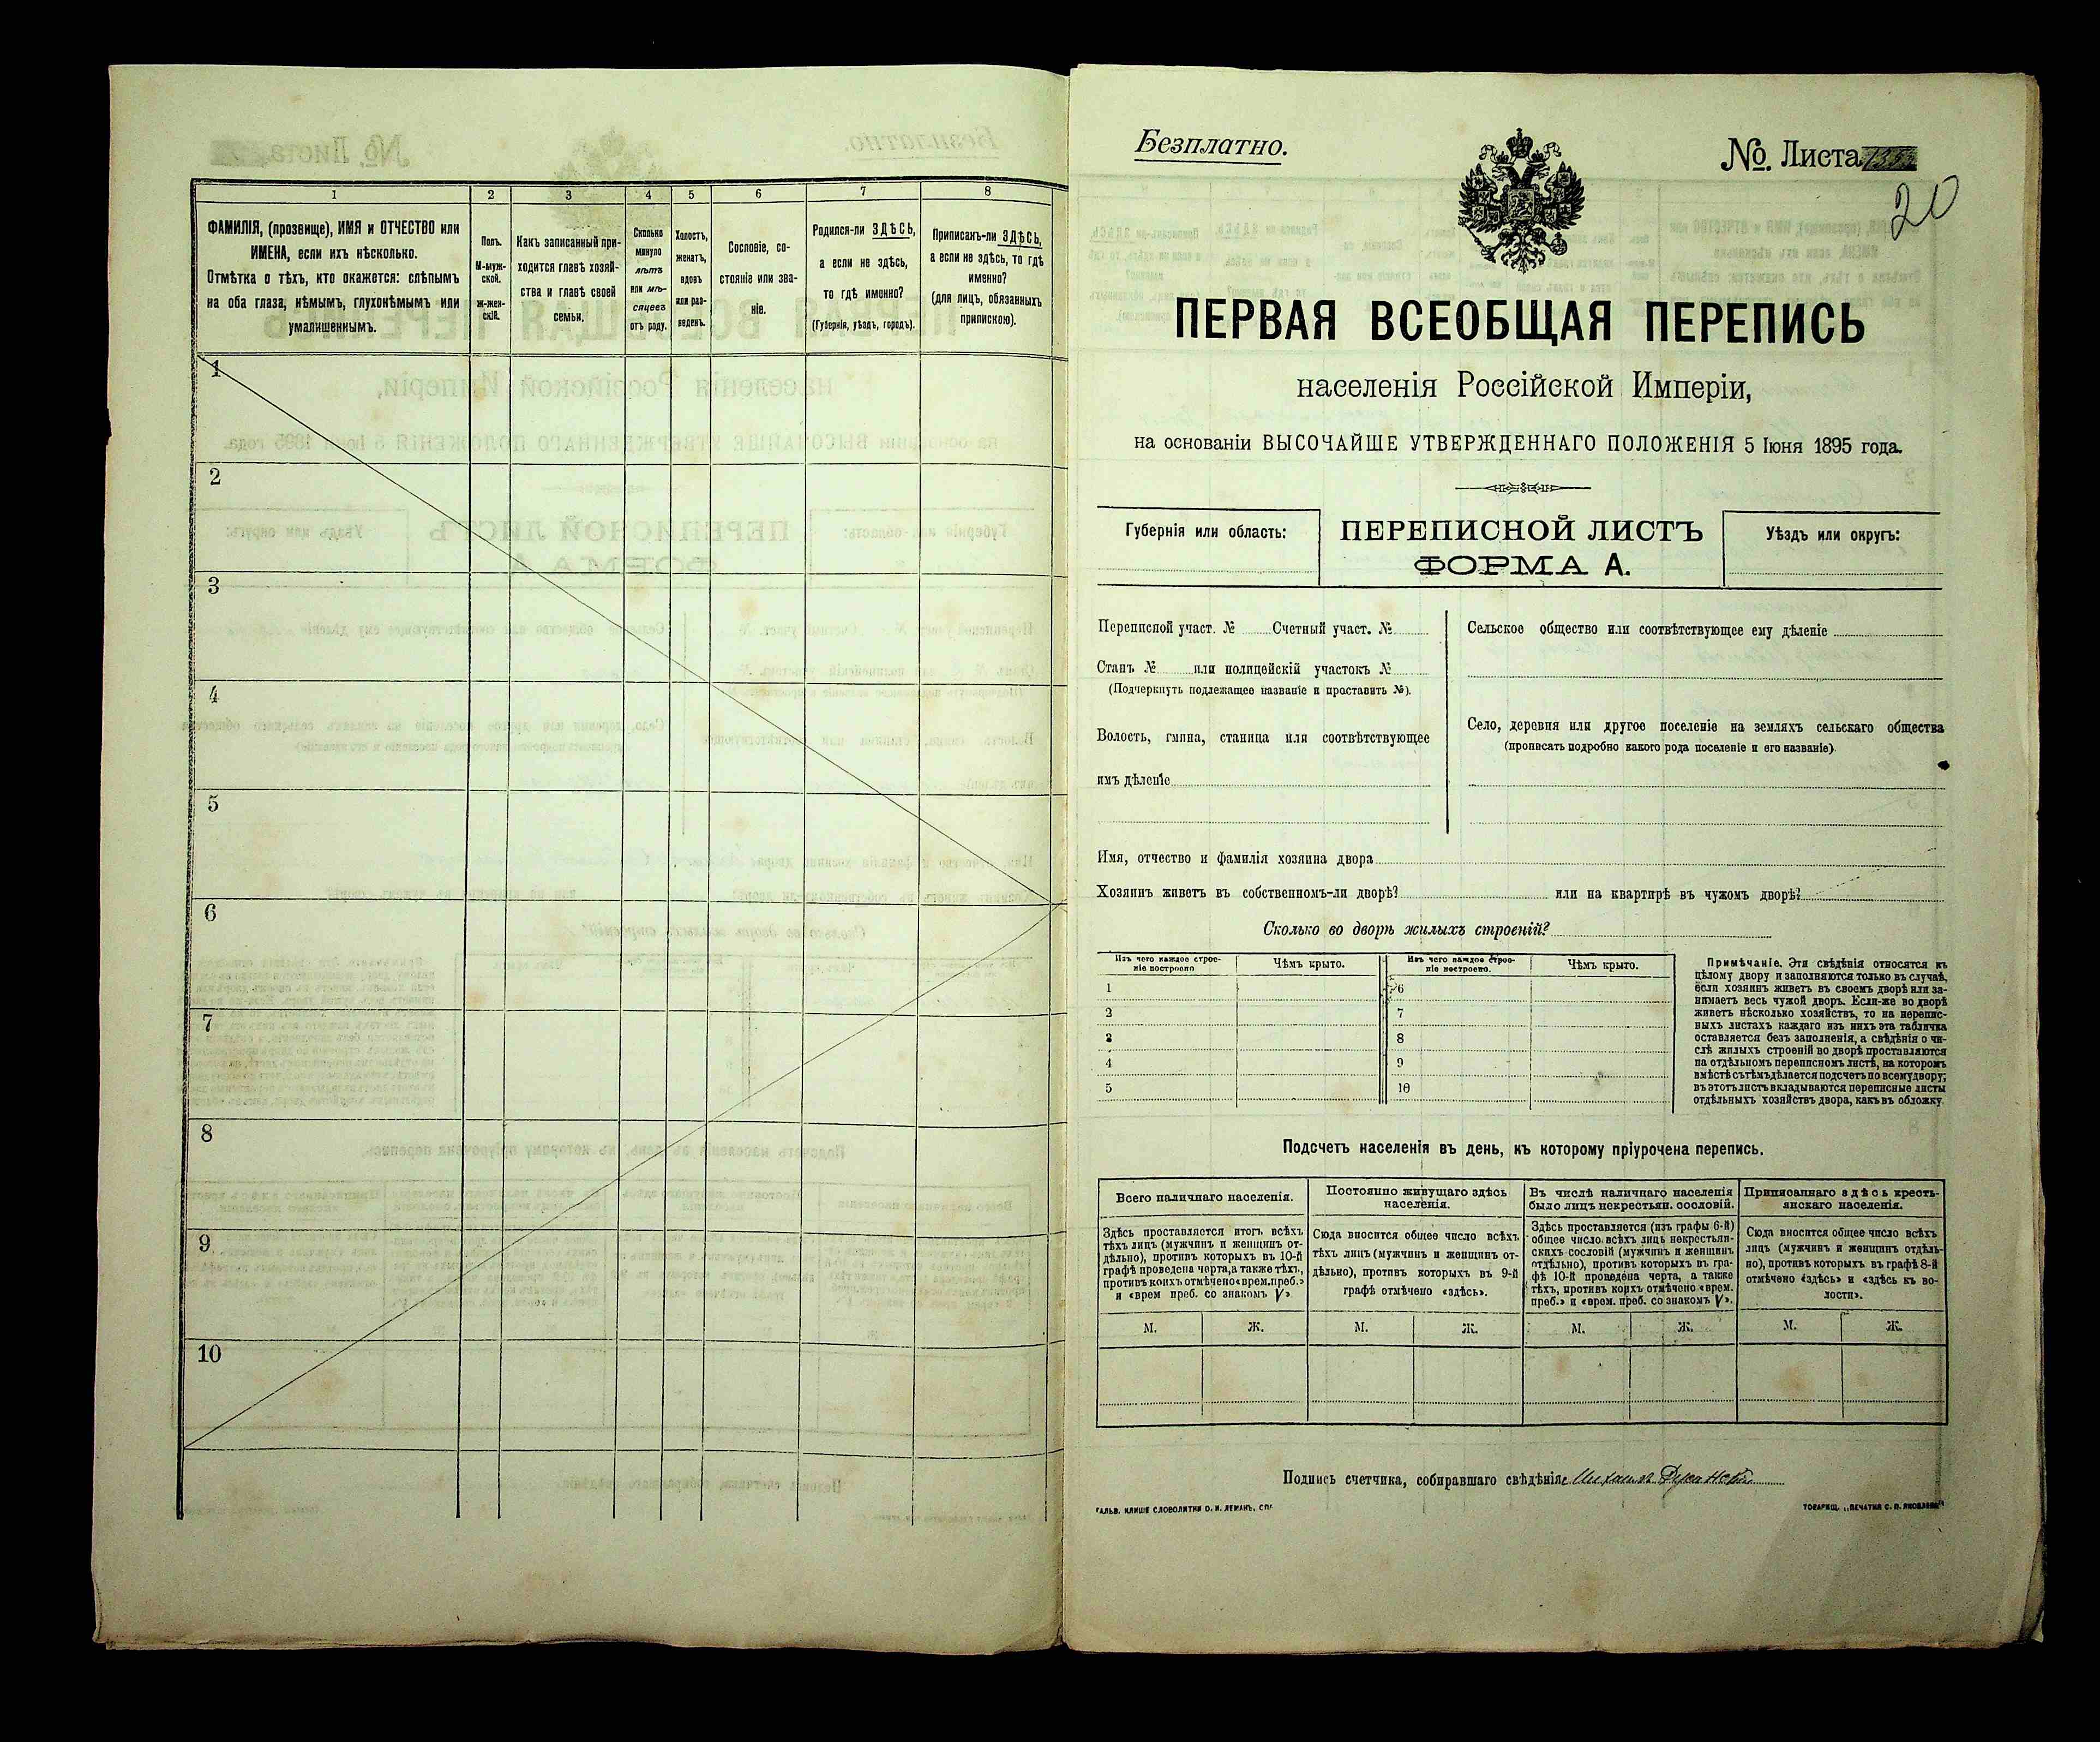 1
2
3
4
5
6
7
8
ФАМИЛІЯ, (прозвище), ИМЯ и ОТЧЕСТВО или
ИМЕНА, если ихъ нѣсколько.
Отмѣтка о тѣхъ, кто окажется: слѣпымъ
на оба глаза, нѣмымъ, глухонѣмымъ или
умалишеннымъ.
Полъ.
М-муж-
ской.
Ж-жен-
скій.
Какъ записанный при-
ходится главѣ хозяй-
ства и главѣ своей
семьи.
Сколько
минуло
лѣтъ
или мѣ-
сяцевъ
отъ роду.
Холостъ,
женатъ,
вдовъ
или раз-
веденъ.
Сословіе, со-
стояніе или зва-
ніе.
Родился-ли ЗДѢСЬ,
а если не здѣсь,
то гдѣ именно?
(Губернія, уѣздъ, городъ).
Приписанъ-ли ЗДѢСЬ,
а если не здѣсь, то гдѣ
именно?
(для лицъ, обязанныхъ
припискою).
1
2
3
4
5
6
7
8
9
10
Безплатно.
№. Листа
20
ПЕРВАЯ ВСЕОБЩАЯ ПЕРЕПИСЬ
населенія Россійской Имперіи,
на основаніи ВЫСОЧАЙШЕ УТВЕРЖДЕННАГО ПОЛОЖЕНІЯ 5 Іюня 1895 года.
Губернія или область:
ПЕРЕПИСНОЙ ЛИСТЪ
ФОРМА А.
Уѣздъ или округъ:
Переписной участ. № Счетный участ. №
Станъ № или полицейскій участокъ №
(Подчеркнуть подлежащее названіе и проставить №).
Волость, гмина, станица или соотвѣтствующее
имъ дѣленіе
Сельское общество или соотвѣтствующее ему дѣленіе
Село, деревня или другое поселеніе на земляхъ сельскаго общества
(прописать подробно какого рода поселеніе и его названіе).
Имя, отчество и фамилія хозяина двора
Хозяинъ живетъ въ собственномъ-ли дворѣ? или на квартирѣ въ чужомъ дворѣ?
Сколько во дворѣ жилыхъ строеній?
Изъ чего каждое строе-
ніе построено
Чѣмъ крыто.
Изъ чего каждое строе-
ніе построено.
Чѣмъ крыто.
1
2
3
4
5
6
7
8
9
10
Примѣчаніе. Эти свѣдѣнія относятся къ
цѣлому двору и заполняются только въ случаѣ,
если хозяинъ живетъ въ своемъ дворѣ или за-
нимаетъ весь чужой дворъ. Если-же во дворѣ
живетъ нѣсколько хозяйствъ, то на перепис-
ныхъ листахъ каждаго изъ нихъ эта табличка
оставляется безъ заполненія, а свѣдѣнія о чи-
слѣ жилыхъ строеній во дворѣ проставляются
на отдѣльномъ переписномъ листѣ, на которомъ
вмѣстѣ съ тѣмъ дѣлается подсчетъ по всему двору;
въ этотъ листъ вкладываются переписные листы
отдѣльныхъ хозяйствъ двора, какъ въ обложку.
Подсчетъ населенія въ день, къ которому пріурочена перепись.
Всего наличнаго населенія.
Постоянно живущаго здѣсь
населенія.
Въ числѣ наличнаго населенія
было лицъ некрестьян. сословій.
Приписаннаго здѣсь кресть-
янскаго населенія.
Здѣсь проставляется итогъ всѣхъ
тѣхъ лицъ (мужчинъ и женщинъ от-
дѣльно), противъ которыхъ въ 10-й
графѣ проведена черта, а также тѣхъ,
противъ коихъ отмѣчено «врем. преб.»
и «врем преб. со знакомъ V».
Сюда вносится общее число всѣхъ
тѣхъ лицъ (мужчинъ и женщинъ от-
дѣльно), противъ которыхъ въ 9-й
графѣ отмѣчено «здѣсь».
Здѣсь проставляется (изъ графы 6-й)
общее число всѣхъ лицъ некрестьян-
скихъ сословій (мужчинъ и женщинъ
отдѣльно), противъ которыхъ въ гра-
фѣ 10-й проведена черта, а также
тѣхъ, противъ коихъ отмѣчено «врем.
преб.» и «врем. преб. со знакомъ V».
Сюда вносится общее число всѣхъ
лицъ (мужчинъ и женщинъ отдѣль-
но), противъ которыхъ въ графѣ 8-й
отмѣчено «здѣсь» и «здѣсь къ во-
лости».
М. Ж. М. Ж. М. Ж. М. Ж.
Подпись счетчика, собиравшаго свѣдѣнія
ГАЛЬВ. КЛИШЕ СЛОВОЛИТНИ О. И. ЛЕМАНЪ, СПГ
ТОВАРИЩ. „ПЕЧАТНЯ С. П. ЯКОВЛЕВА"